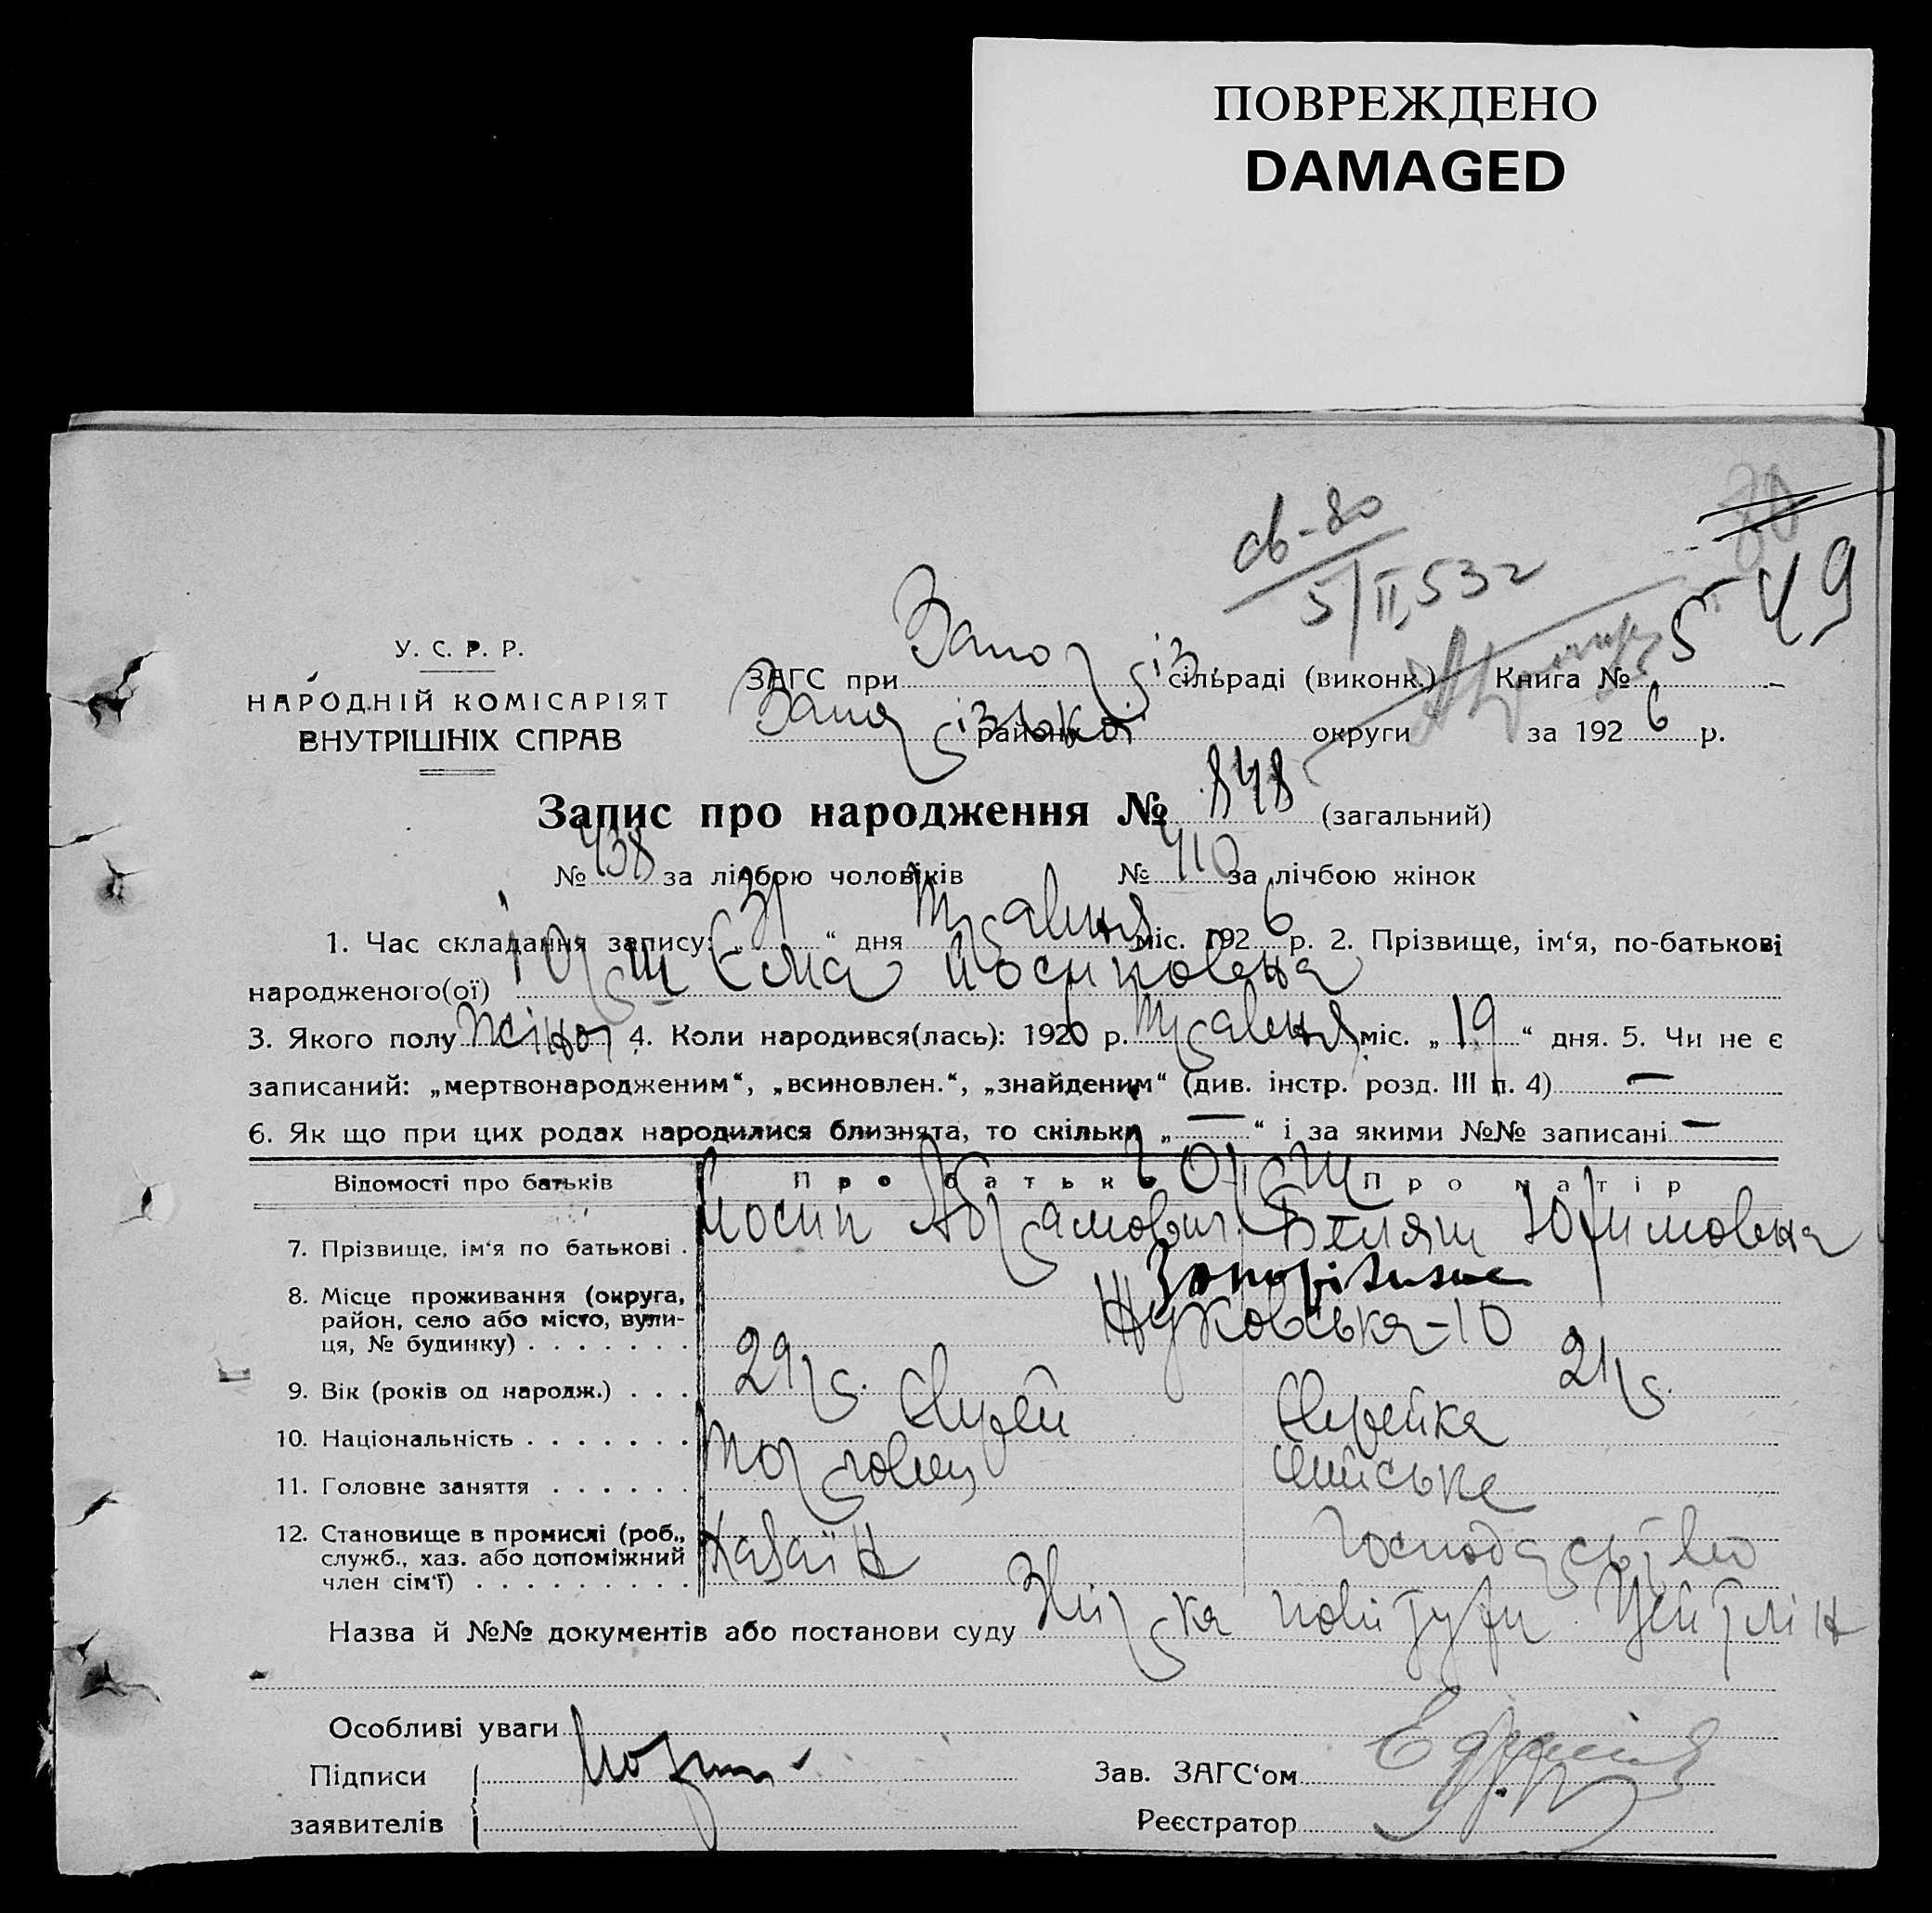 ПОВРЕЖДЕНО
DAMAGED
св-80
5/II 53 г
49
У. С. Р. Р.
НАРОДНІЙ КОМІСАРІЯТ
ВНУТРІШНІХ СПРАВ
ЗАГС при Запоріз. сільраді (виконк.) Книга № 5
Запорізької району округи за 1926 р.
Запис про народження № 848 (загальний)
№ 438 за лічбою чоловіків № 410 за лічбою жінок
1. Час складання запису: „31“ дня Травня міс. 1926 р. 2. Прізвище, ім‘я, по-батькові
народженого(ої) Йосиповна
3. Якого полу жіноч 4. Коли народився(лась): 1926 р. Травня міс. „19“ дня. 5. Чи не є
записаний: „мертвонародженим“, „всиновлен.“, „знайденим“ (див. інстр. розд. III п. 4) —
6. Як що при цих родах народилися близнята, то скільки „—“ і за якими №№ записані —
Відомості про батьків Про батька Про матір
7. Прізвище, ім‘я по батькові . Йосип Абрамович Юхимовна
8. Місце проживання (округа, Запоріжжє
район, село або місто, вули- Жуковська-10
ця, № будинку) . . . . . . .
9. Вік (років од народж.) . . . 29 р. 21 р.
10. Національність . . . . . . . Єврей Єврейка
11. Головне заняття . . . . . . Торговец Хатнє
12. Становище в промислі (роб., Хазаїн господарство
служб., хаз. або допоміжний
член сім‘ї) . . . . . . . . .
Назва й №№ документів або постанови суду повітухи Цейтлін
Особливі уваги
Підписи
заявителів
Зав. ЗАГС‘ом
Реєстратор